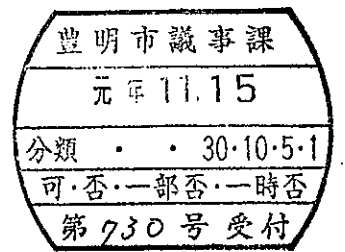 豊明市議事課
元年11.15
分類 ・ ・ 30・10・5・1
可・否・一部否・一時否
第730号受付